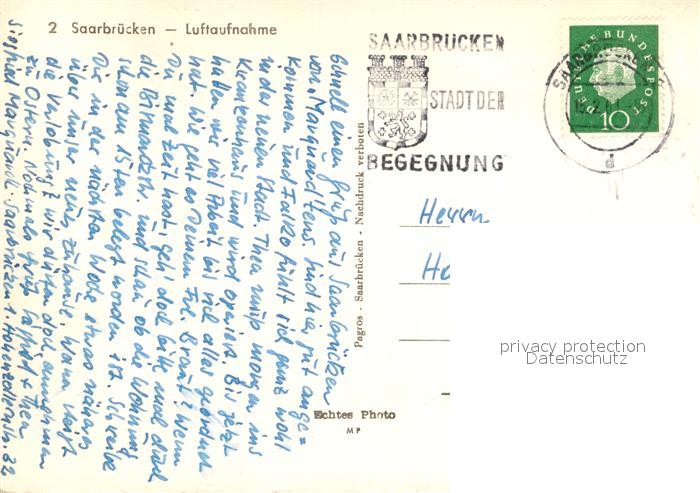 2 Saarbrücken — Luftaufnahme
SAARBRÜCKEN
STADT DER
BEGEGNUNG
DEUTSCHE BUNDESPOST
10
SAARBRÜCKEN
a
Schnell einen Gruß aus Saarbrücken
von Marquardtens. Sind hier gut ange=
kommen und Falko fühlt sich ganz wohl
in der neuen Stadt. Thea muß morgen ins
Krankenhaus und wird operiert. Bis jetzt
haben wir viel Arbeit bis alles geordnet
ist. Wie geht es Deinem Frl. Braut? Wenn
Du mal Zeit hast, geh doch bitte mal durch
die Bismarckstr. und schau ob die Wohnung
schon am 15ten belegt worden ist. Schreibe
Dir in der nächsten Woche etwas näheres
über unser neues Zuhause. Wann steigt
die Verlobung? wir dürfen doch annehmen
zu Ostern. Nochmals Gruß Sigfrid + Thea
Siegfried Marquardt Saarbrücken 1. Hohenzollernstr. 22
Pagros - Saarbrücken - Nachdruck verboten
Herrn
He
Echtes Photo
MP
privacy protection
Datenschutz